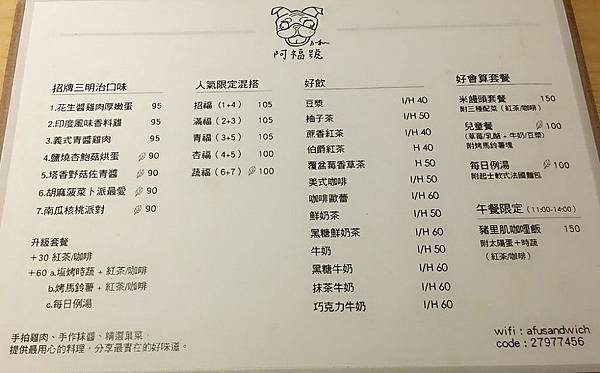 阿福號
招牌三明治口味
1.花生醬雞肉厚嫩蛋 95
2.印度風味香料雞 95
3.義式青醬雞肉 95
4.鹽燒杏鮑菇烘蛋 90
5.塔香野菇佐青醬 90
6.胡麻菠菜卜派最愛 90
7.南瓜核桃派對 90
升級套餐
+30 紅茶/咖啡
+60 a.塩烤時蔬 + 紅茶/咖啡
b.烤馬鈴薯 + 紅茶/咖啡
c.每日例湯
人氣限定混搭
招福 (1+4) 105
滿福 (2+3) 105
青福 (3+5) 105
杏福 (4+5) 100
蔬福 (6+7) 100
好飲
豆漿 I/H 40
柚子茶 I/H 50
蔗香紅茶 I/H 40
伯爵紅茶 H 40
覆盆莓香草茶 H 50
美式咖啡 I/H 50
咖啡歐蕾 I/H 60
鮮奶茶 I/H 50
黑糖鮮奶茶 I/H 60
牛奶 I/H 50
黑糖牛奶 I/H 60
抹茶牛奶 I/H 60
巧克力牛奶 I/H 60
好會算套餐
米饅頭套餐 150
附三種配菜 (紅茶/咖啡)
兒童餐 100
(草莓/乳酪 + 牛奶/豆漿)
附烤馬鈴薯塊
每日例湯 100
附起士軟式法國麵包
午餐限定 (11:00-14:00)
豬里肌咖哩飯 150
附太陽蛋+時蔬
(紅茶/咖啡)
手拍雞肉、手作抹醬、精選葉菜，
提供最用心的料理，分享最實在的好味道。
wifi : afusandwich
code : 27977456